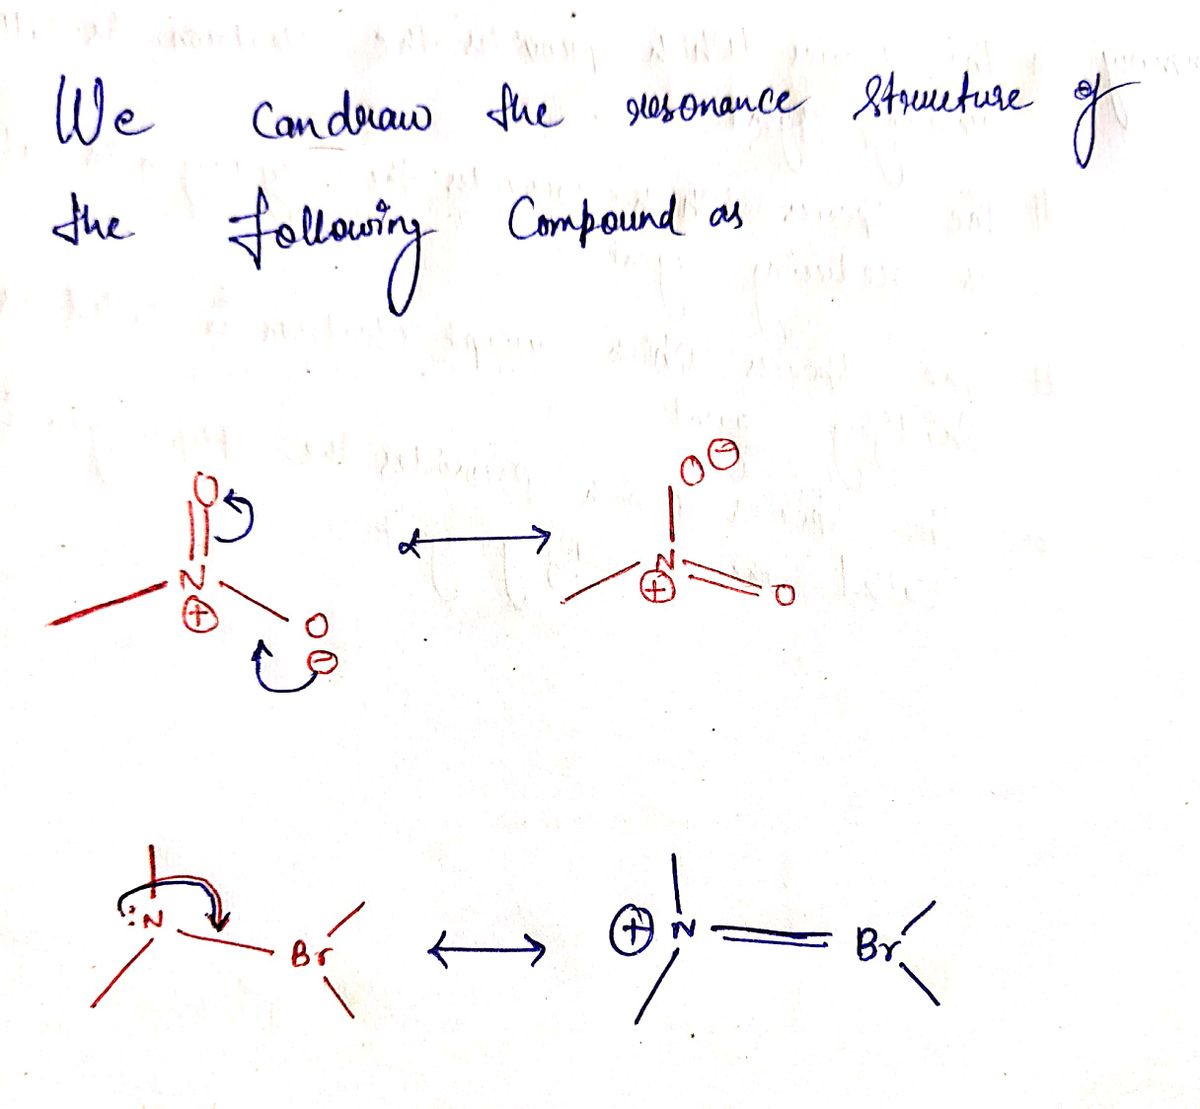 We can draw the resonance structure of
the following Compound as
O
O⊖
N
⊕
O
⊖
N
⊕
O
:N
Br
⊕ N
Br